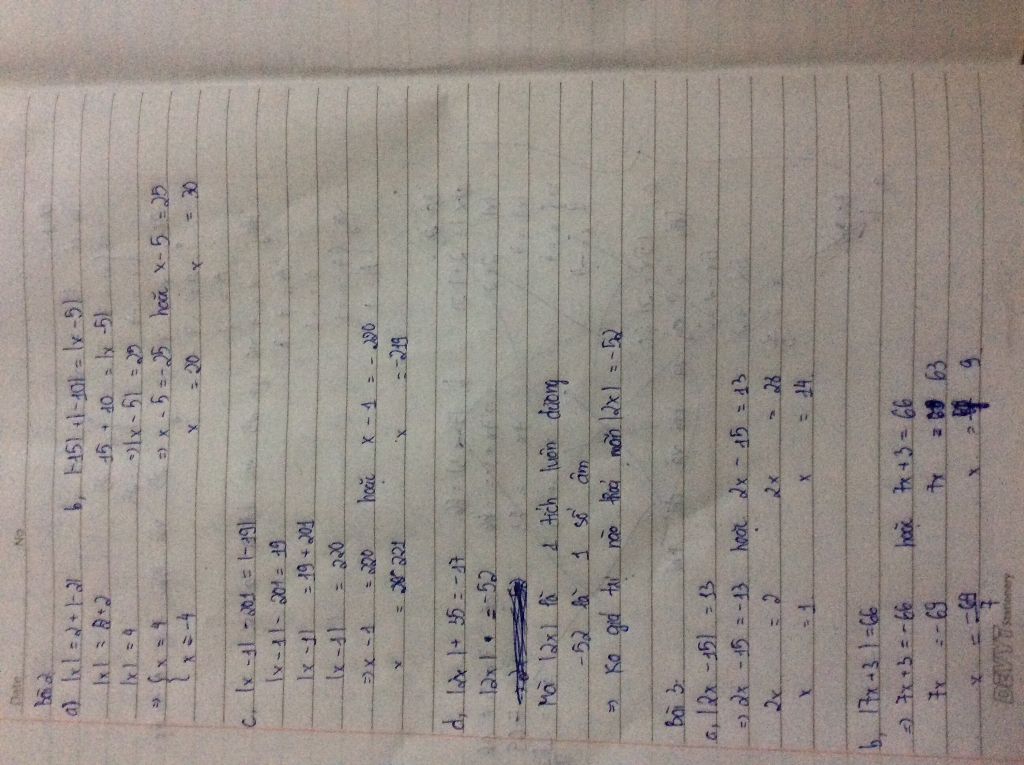 Date No
Bài 2
a) |x| = 2 + |-2| b, |-15| + |-10| = |x - 5|
|x| = 2 + 2 15 + 10 = |x - 5|
|x| = 4 => |x - 5| = 25
=> { x = 4 => x - 5 = -25 hoặc x - 5 = 25
{ x = -4 x = 20 x = 30
c, |x - 1| - 201 = |-19|
|x - 1| - 201 = 19
|x - 1| = 19 + 201
|x - 1| = 220
=> x - 1 = 220 hoặc x - 1 = - 220
x = 221 x = -219
d, |2x| + 35 = -17
|2x| = -52
Mà |2x| là 1 tích luôn dương
-52 là 1 số âm
=> Ko giá trị nào thoả mãn |2x| = -52
Bài 3:
a, |2x - 15| = 13
=> 2x - 15 = -13 hoặc 2x - 15 = 13
2x = 2 2x = 28
x = 1 x = 14
b, |7x + 3| = 66
=> 7x + 3 = -66 hoặc 7x + 3 = 66
7x = -69 7x = 63
x = -69/7 x = 9
Stationery